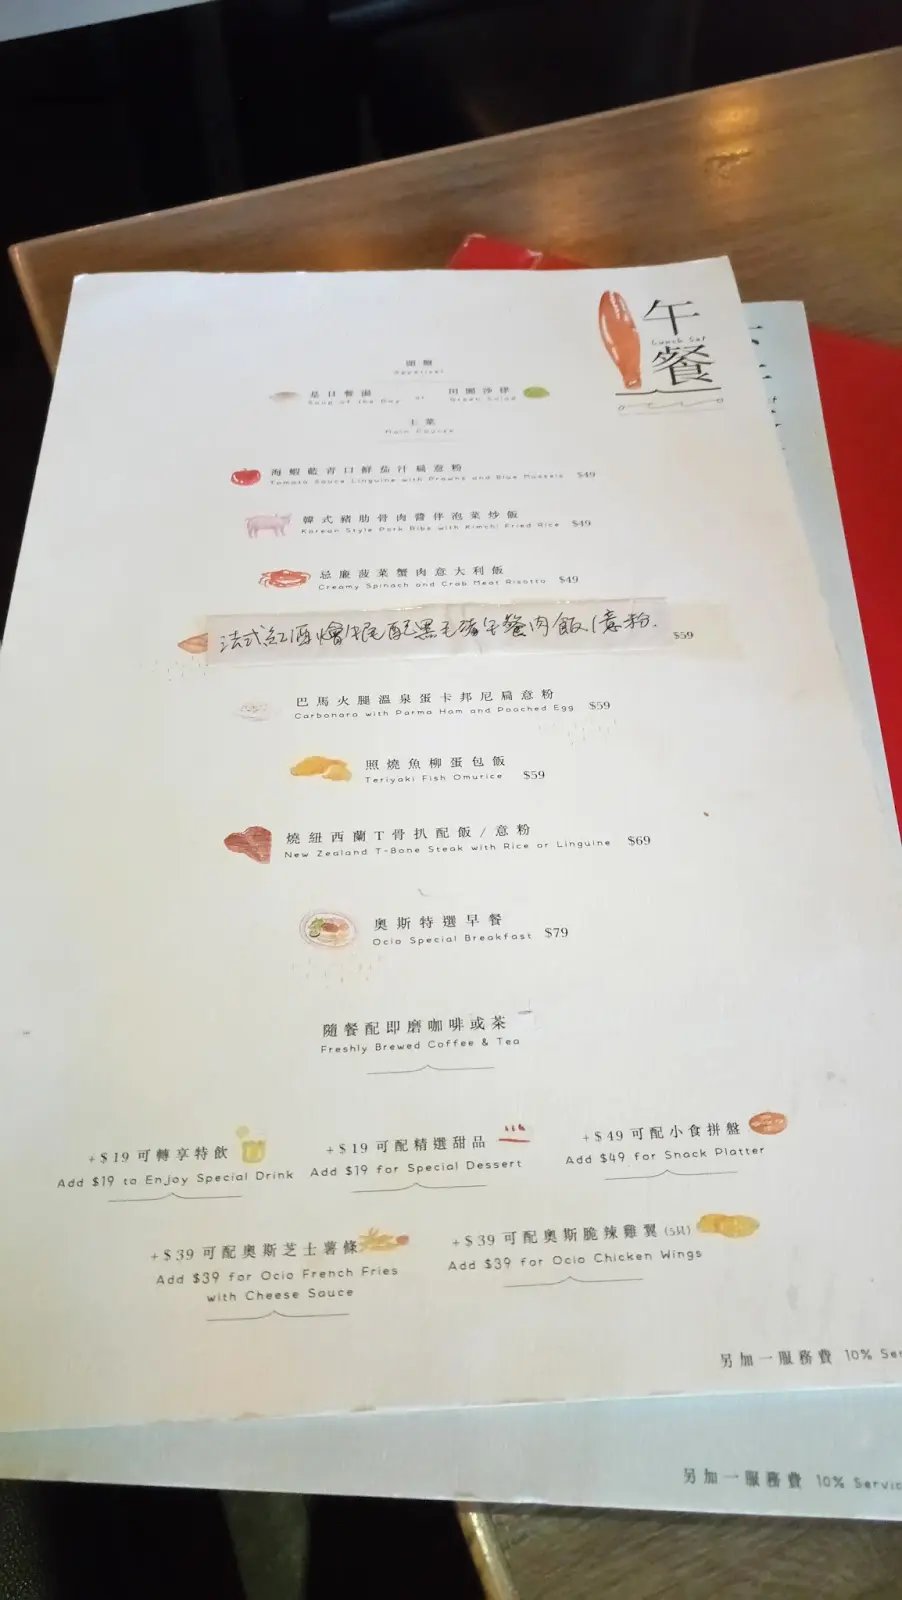 午餐
Lunch Set
頭盤
Appetizer
是日餐湯
Soup of the Day
or
田園沙律
Green Salad
主菜
Main Course
海蝦藍青口鮮茄汁扁意粉
Tomato Sauce Linguine with Prawns and Blue Mussels $49
韓式豬肋骨肉醬伴泡菜炒飯
Korean Style Pork Ribs with Kimchi Fried Rice $49
忌廉菠菜蟹肉意大利飯
Creamy Spinach and Crab Meat Risotto $49
法式紅酒燴牛尾配黑毛豬午餐肉飯/意粉. $59
巴馬火腿溫泉蛋卡邦尼扁意粉
Carbonara with Parma Ham and Poached Egg $59
照燒魚柳蛋包飯
Teriyaki Fish Omurice $59
燒紐西蘭T骨扒配飯/意粉
New Zealand T-Bone Steak with Rice or Linguine $69
奧斯特選早餐
Ocio Special Breakfast $79
隨餐配即磨咖啡或茶
Freshly Brewed Coffee & Tea
+$19可轉享特飲
Add $19 to Enjoy Special Drink
+$19可配精選甜品
Add $19 for Special Dessert
+$49可配小食拼盤
Add $49 for Snack Platter
+$39可配奧斯芝士薯條
Add $39 for Ocio French Fries
with Cheese Sauce
+$39可配奧斯脆辣雞翼(5隻)
Add $39 for Ocio Chicken Wings
另加一服務費 10% Ser
另加一服務費 10% Servic